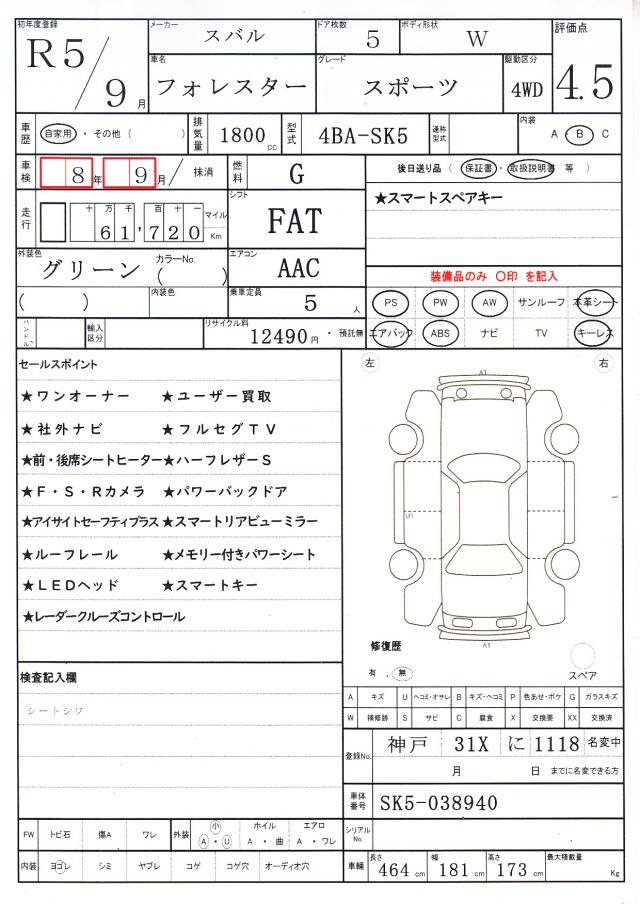 初年度登録 メーカー ドア枚数 ボディ形状 評価点
R5/9月 スバル 5 W 4.5
車名 グレード 駆動区分
フォレスター スポーツ 4WD
車歴 自家用 ・ その他 ( ) 排気量 1800 cc 型式 4BA-SK5 通称型式 内装 A ・ B C
車検 8 年 9 月 / 抹消 燃料 G 後日送り品 ( 保証書 ・ 取扱説明書 等 )
走行 十 万 千 百 十 一 マイル Km シフト
61,720 FAT ★スマートスペアキー
外装色 カラーNo. エアコン
グリーン ( ) AAC 装備品のみ 〇印 を記入
( ) 内装色 乗車定員 5 人 PS PW AW サンルーフ 本革シート
ハンドル 輸入区分 リサイクル料 12490 円 ・ 預託無 エアバック ABS ナビ TV キーレス
セールスポイント 左 右
★ワンオーナー ★ユーザー買取 A1
★社外ナビ ★フルセグTV
★前・後席シートヒーター★ハーフレザーS
★F・S・Rカメラ ★パワーバックドア
★アイサイトセーフティプラス★スマートリアビューミラー U1
★ルーフレール ★メモリー付きパワーシート
★LEDヘッド ★スマートキー
★レーダークルーズコントロール
修復歴 A1
有 . 無 スペア
検査記入欄
シートシワ
A キズ U ヘコミ・オサレ B キズ・ヘコミ P 色あせ・ボケ G ガラスキズ
W 補修跡 S サビ C 腐食 X 交換要 XX 交換済
登録No. 神戸 31X に 1118 名変中
月 日 までに名変できる方
車体番号 SK5-038940
FW トビ石 傷A ワレ 外装 小 A ・ U ホイル A ・ 曲 エアロ A ・ ワレ シリアルNo.
内装 ヨゴレ シミ ヤブレ コゲ コゲ穴 オーディオ穴 車輛 長さ 464 cm 幅 181 cm 高さ 173 cm 最大積載量 Kg